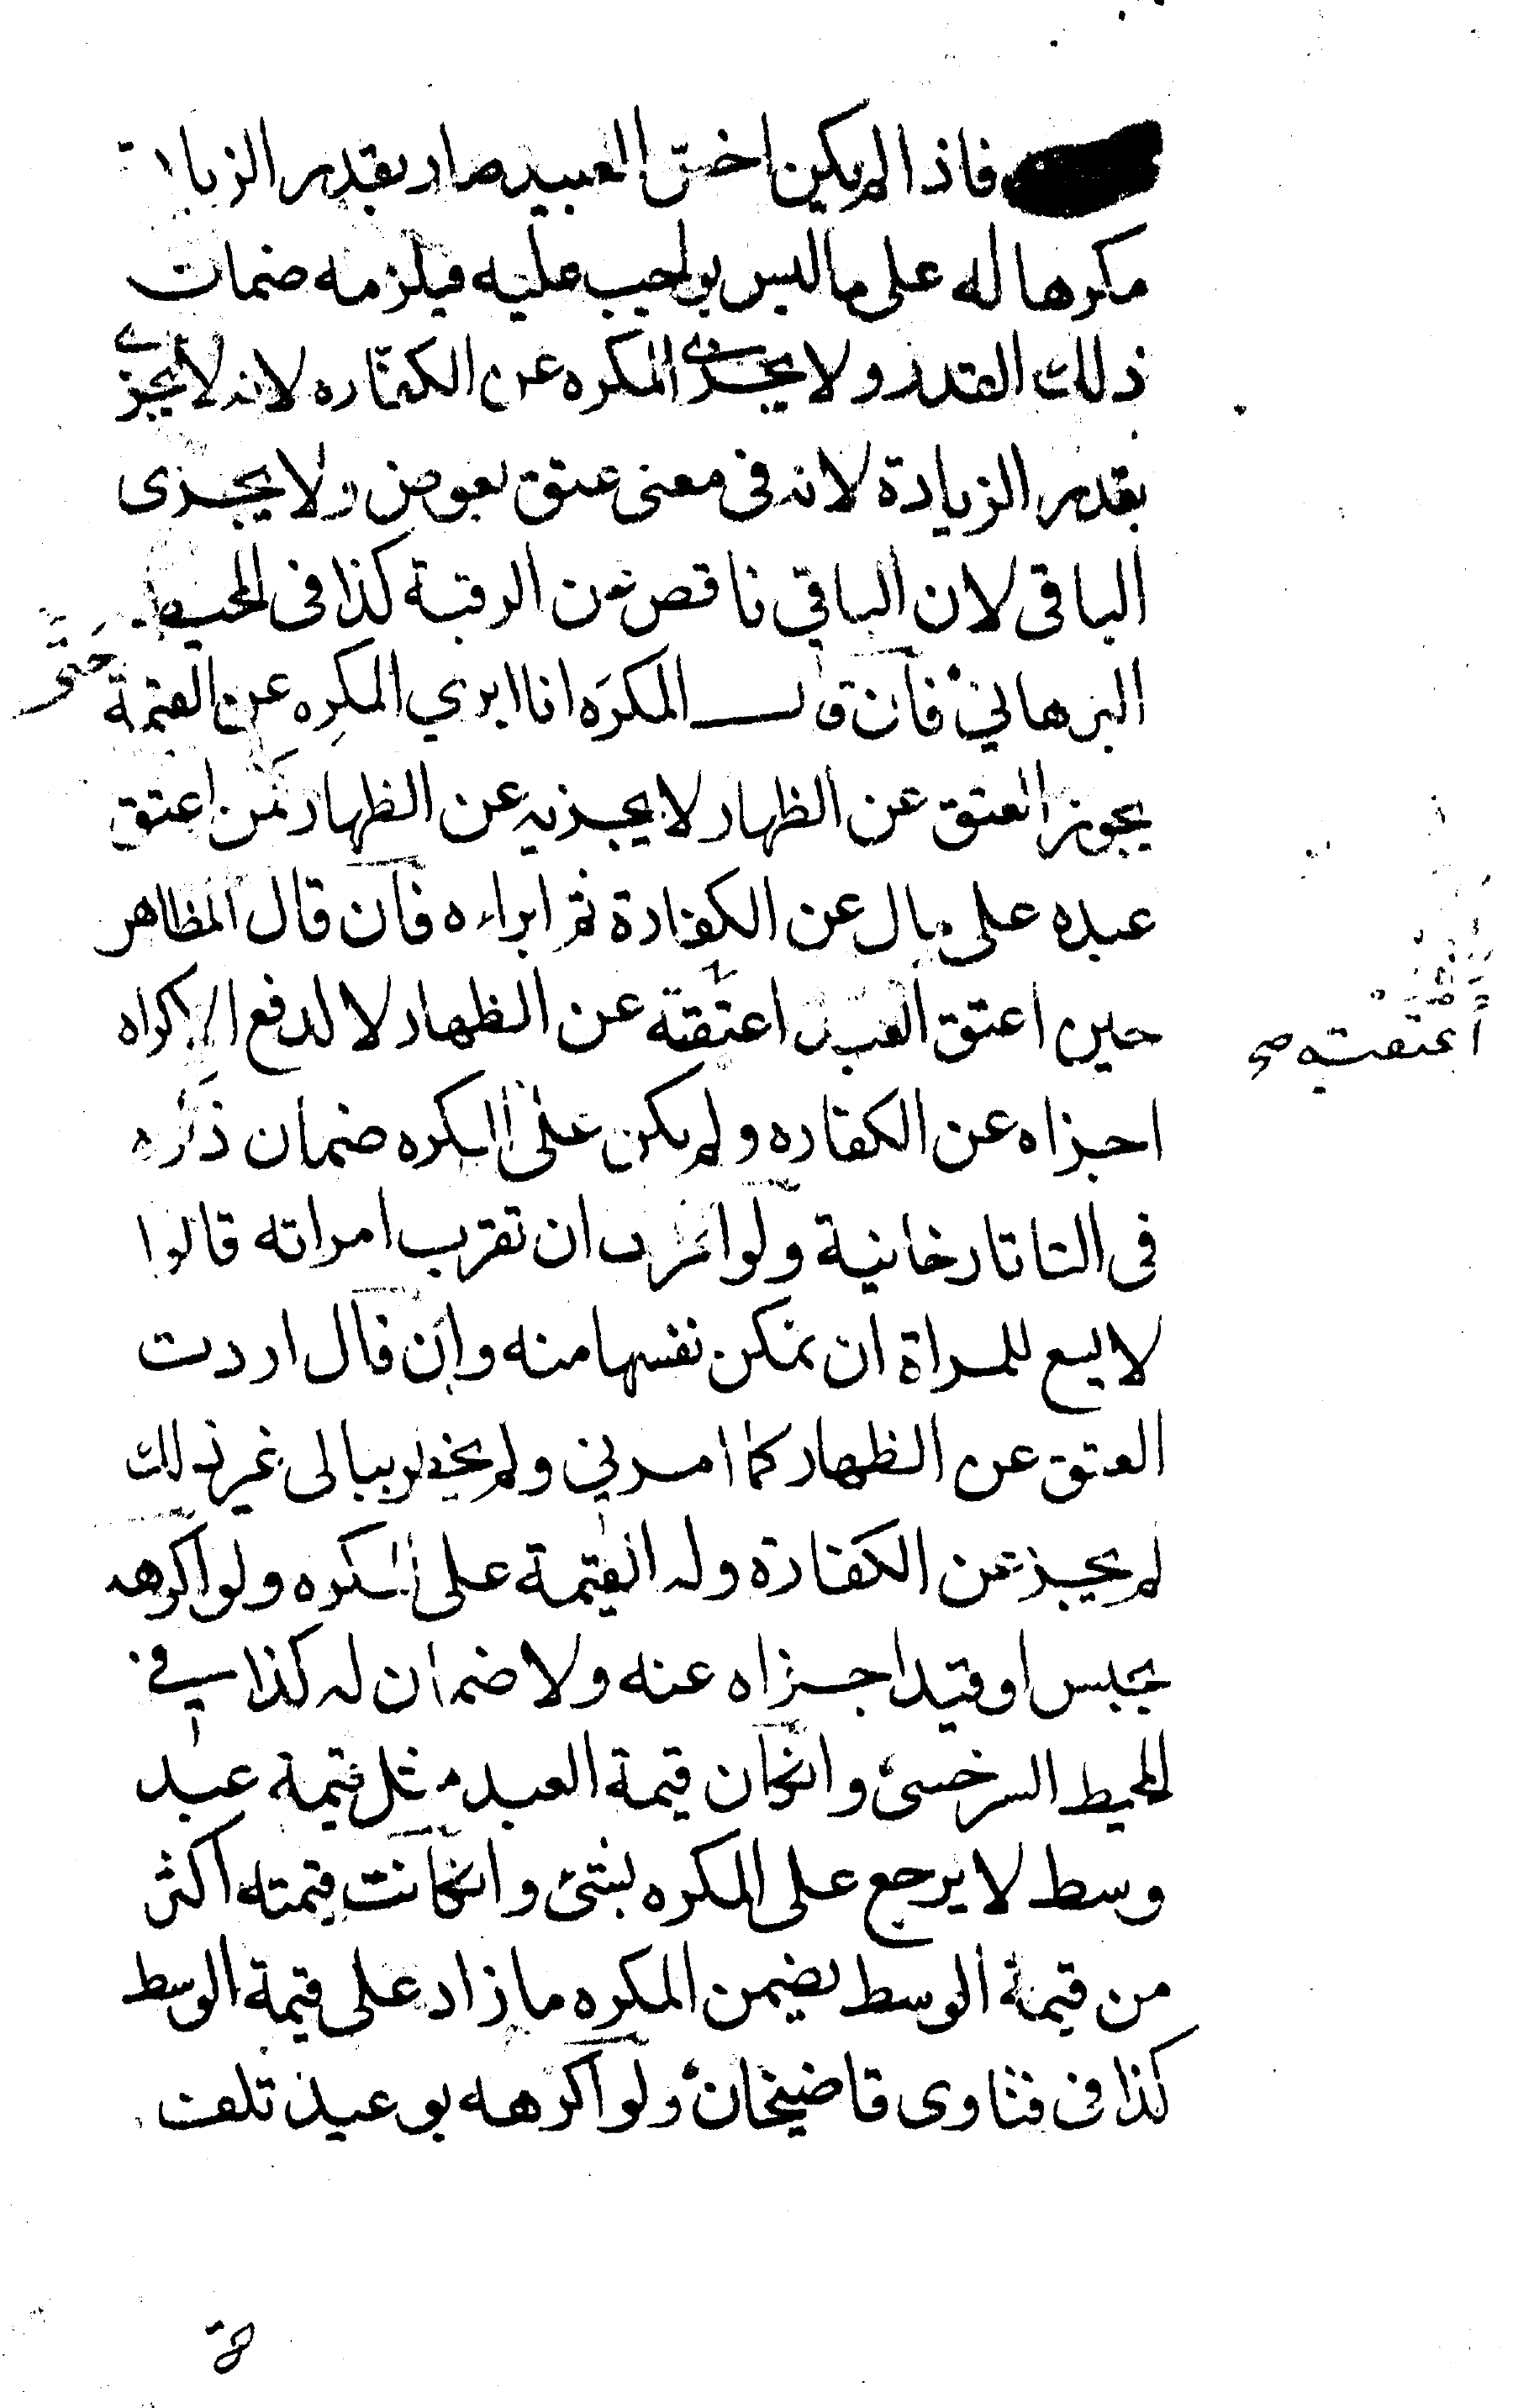 فاذا لم يكن اخس العبيد صار بقدر الزيادة
مكرها له على ما ليس بواجب عليه فيلزمه ضمان
ذلك القدر ولا يجزى المكره عن الكفاره لانه لا يجزى
بقدر الزيادة لانه فى معنى عتق بعوض ولا يجزى
الباقى لان الباقي ناقص من الرقبة كذا فى المحيط
البرهاني فان قال المكرَه انا ابري المكرِه عن القيمة حتى
يجوز العتق عن الظهار لا يجزيه عن الظهار كمن اعتق
عبده على مال عن الكفارة ثم ابراءه فان قال المظاهر
حين اعتق العبد اعتقته عن الظهار لا لدفع الاكراه
أعتقته صح
اجزاه عن الكفاره ولم يكن على المكره ضمان ذكره
فى التاتارخانية ولو ان تقرب امراته قالوا
لا يسع للمراة ان تمكن نفسها منه وان قال اردت
العتق عن الظهار كما امرني ولم يخطر ببالى غير ذلك
لم يجز عن الكفارة وله القيمة على المكره ولو اكرهه
بحبس او قيد اجزاه عنه ولا ضمان له كذا في
المحيط السرخسى وانكان قيمة العبد مثل قيمة عبد
وسط لا يرجع على المكره بشئ وانكانت قيمته اكثر
من قيمة الوسط يضمن المكره ما زاد على قيمة الوسط
كذا فى فتاوى قاضيخان ولو اكرهه بوعيد تلف